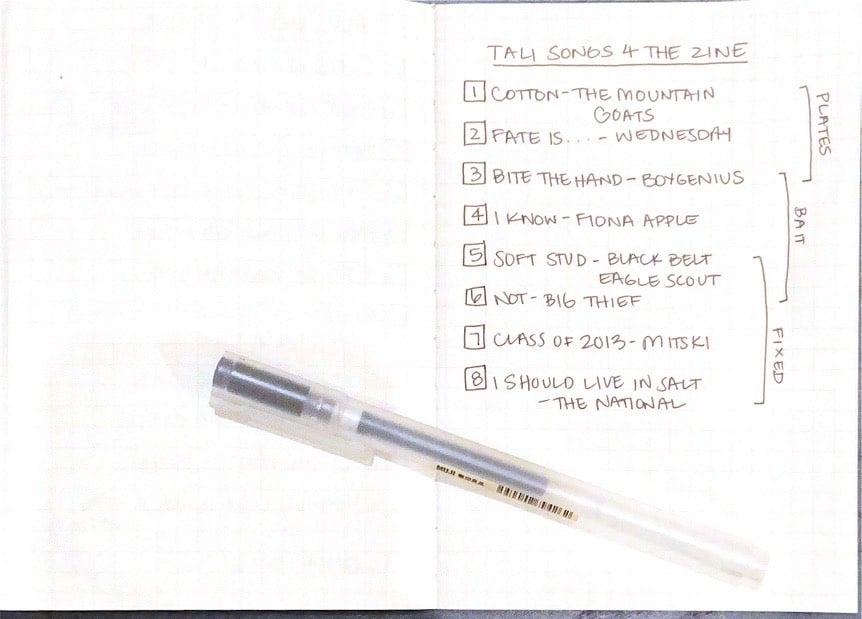 TALI SONGS 4 THE ZINE
1 COTTON-THE MOUNTAIN
GOATS
2 FATE IS... - WEDNESDAY
3 BITE THE HAND-BOYGENIUS
4 I KNOW-FIONA APPLE
5 SOFT STUD-BLACK BELT
EAGLE SCOUT
6 NOT-BIG THIEF
7 CLASS OF 2013-MITSKI
8 I SHOULD LIVE IN SALT
-THE NATIONAL
PLATES
BAIT
FIXED
MUJI